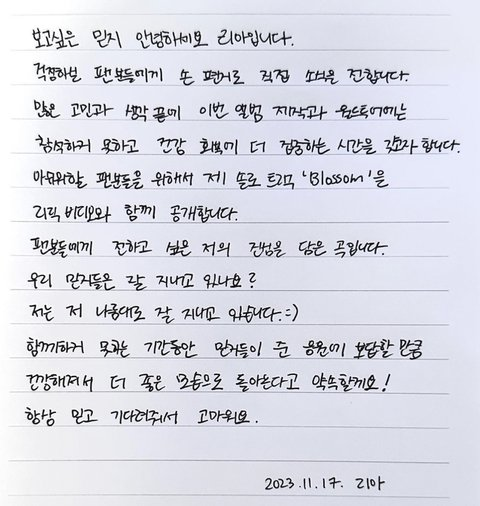 보고싶은 믿지 안녕하세요 리아입니다.
걱정하실 팬분들에게 손 편지로 직접 소식을 전합니다.
많은 고민과 생각 끝에 이번 앨범 제작과 월드투어에는
참석하지 못하고 건강 회복에 더 집중하는 시간을 갖고자 합니다.
아쉬워할 팬분들을 위해서 제 솔로 트랙 'Blossom'을
리릭 비디오와 함께 공개합니다.
팬분들에게 전하고 싶은 저의 진심을 담은 곡입니다.
우리 믿지들은 잘 지내고 있나요?
저는 저 나름대로 잘 지내고 있습니다.:=)
함께하지 못하는 기간동안 믿지들이 준 응원에 보답할 만큼
건강해져서 더 좋은 모습으로 돌아온다고 약속할게요!
항상 믿고 기다려줘서 고마워요.
2023.11.17. 리아